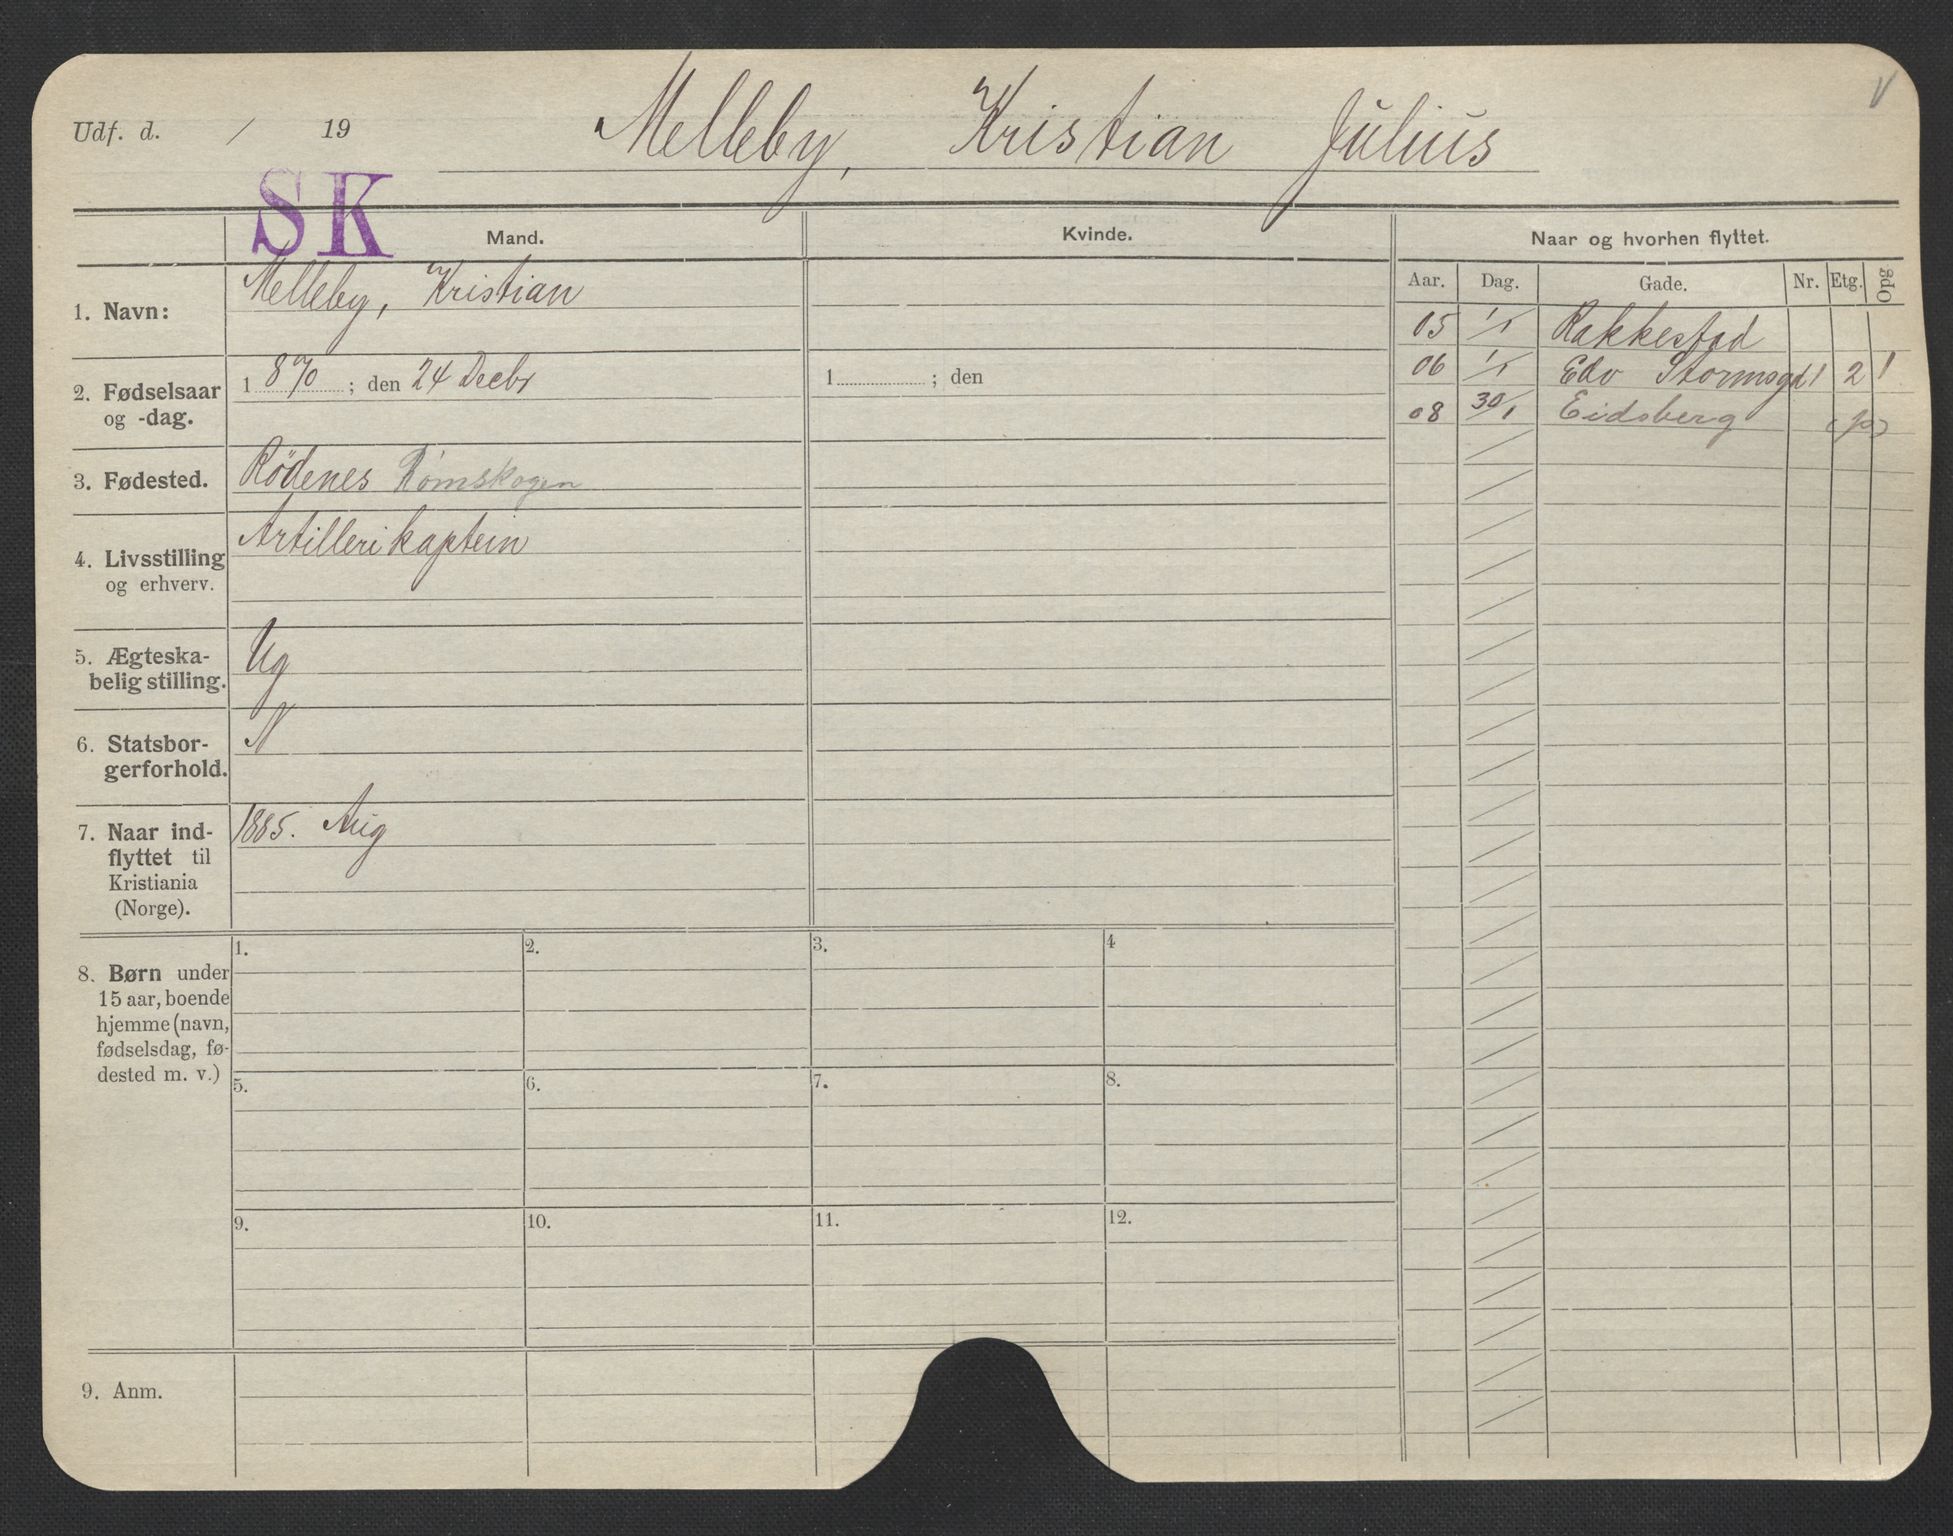 V
Udf. d. / 19 Melleby, Kristian Julius
SK
Mand. Kvinde. Naar og hvorhen flyttet.
Aar. Dag. Gade. Nr. Etg. Opg
1. Navn: Melleby, Kristian
05 1/1 Rakkestad
06 1/1 Edv Stormsgd 1 2 1
08 30/1 Eidsberg
2. Fødselsaar 1 870 ; den 24 Decbr 1 ; den
og -dag.
3. Fødested. Rödenes Rømskogen
4. Livsstilling Artillerikaptein
og erhverv.
5. Ægteska- Ug
belig stilling.
6. Statsbor- N
gerforhold.
7. Naar ind- 1885. Aug
flyttet til
Kristiania
(Norge).
1. 2. 3. 4
8. Børn under
15 aar, boende
hjemme (navn,
fødselsdag, fø-
dested m. v.)
5. 6. 7. 8.
9. 10. 11. 12.
9. Anm.